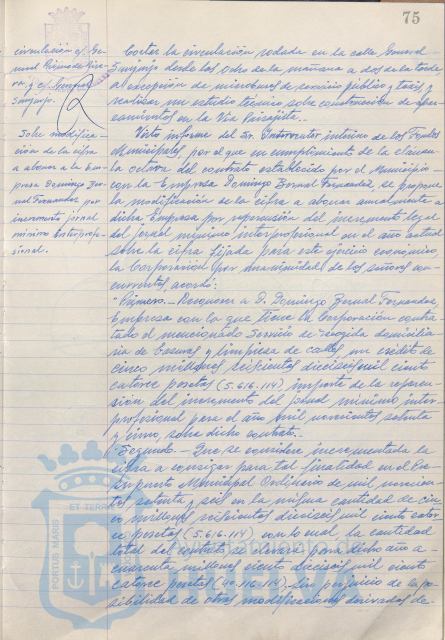 75
circulación c/ Ge-
neral Primo de Rive-
ra y c/ General
Sanjurjo.
Sobre modifica-
ción de la cifra
a abonar a la Em-
presa Domingo Bernal
Fernández por
incremento jornal
mínimo Interprofe-
sional.
Cortar la circulación rodada en la calle General
Sanjurjo desde las ocho de la mañana a dos de la tarde
a excepción de microbuses de servicio público y taxis, y
realizar un estudio técnico sobre construcción de apar
camientos en la Vía Paisajista.
Visto informe del Sr. Interventor interino de los Fondos
Municipales, por el que en cumplimiento de la cláusu
la octava del contrato establecido por el Municipio
con la Empresa Domingo Bernal Fernández, se propone
la modificación de la cifra a abonar anualmente a
dicha Empresa por repercusión del incremento legal
del jornal mínimo interprofesional en el año actual
sobre la cifra fijada para este ejercicio económico,
la Corporación por unanimidad de los señores con-
currentes, acordó:
"Primero.- Reconocer a D. Domingo Bernal Fernández,
Empresa con la que tiene la Corporación contra
tado el mencionado Servicio de recogida domicilia
ria de basuras y limpieza de calles, un crédito de
cinco millones seiscientas dieciseis mil ciento
catorce pesetas (5.616.114) importe de la repercu-
sión del incremento del jornal mínimo inter
profesional para el año mil novecientos setenta
y cinco, sobre dicho contrato.
Segundo.- Que se considere incrementada la
cifra a consignar para tal finalidad en el Pre-
supuesto Municipal Ordinario de mil novecien-
tos setenta y seis en la misma cantidad de cin
co millones seiscientas dieciseis mil ciento cator
ce pesetas (5.616.114) con lo cual, la cantidad
total del contrato se elevará para dicho año a
cuarenta millones ciento dieciseis mil ciento
catorce pesetas (40.116.114) sin perjuicio de la po
sibilidad de otras modificaciones derivadas de
PORTUS MARIS ET TERRAE
HUELVA